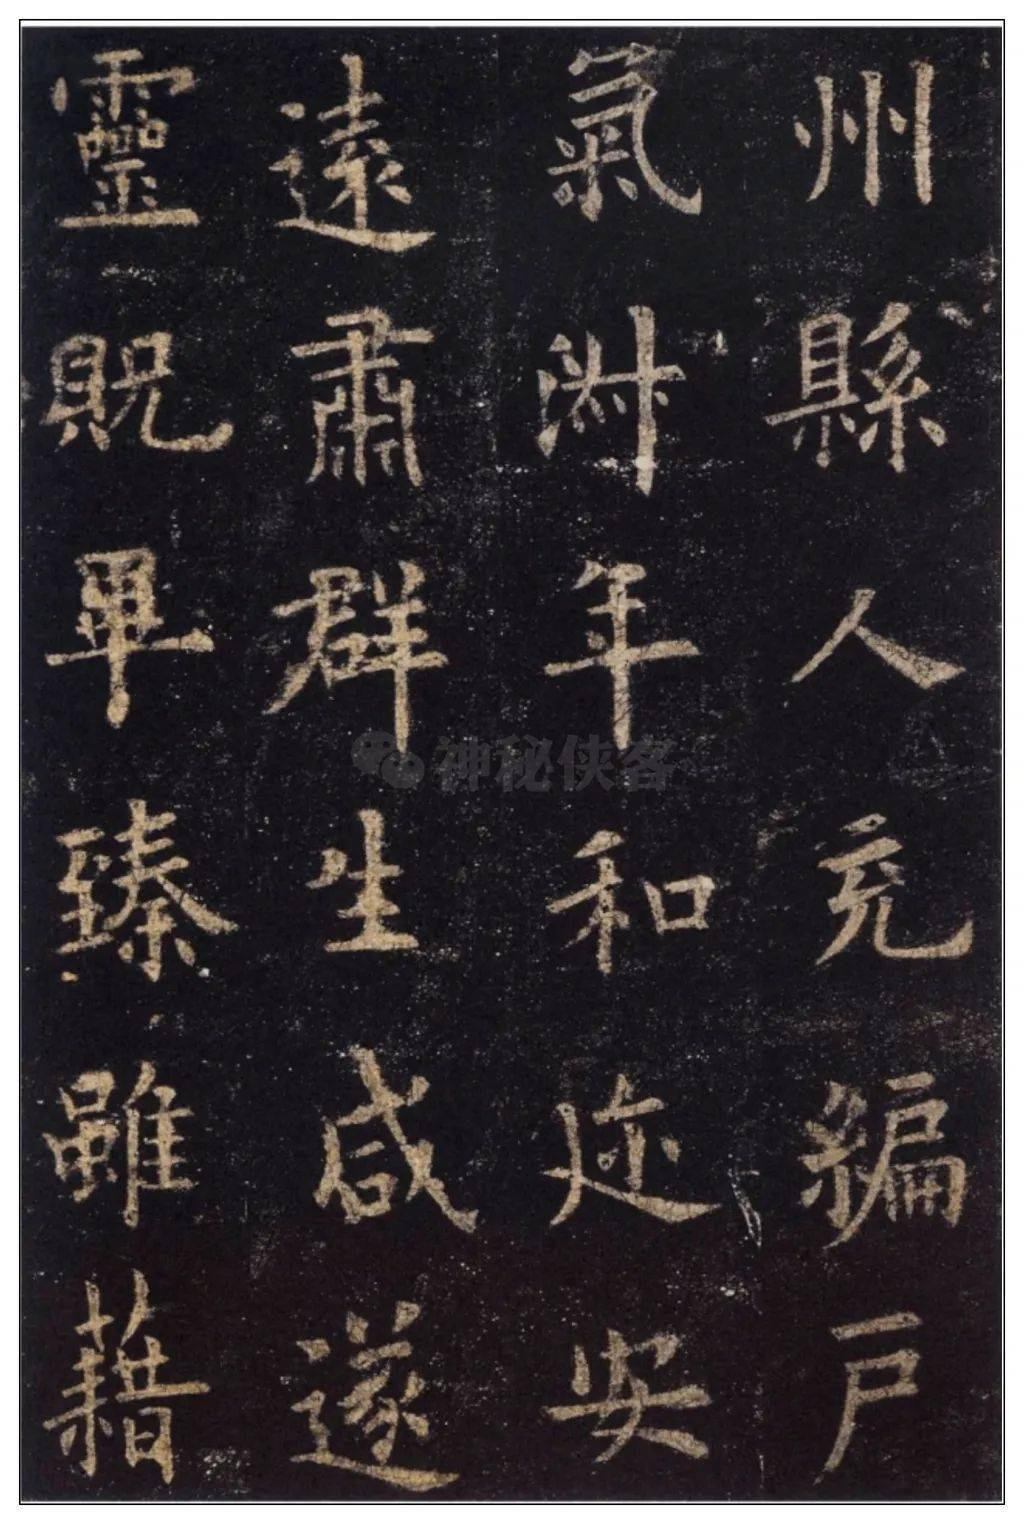 州縣人充編戶
氣淋年和迩安
遠肅群生咸遂
靈貺畢臻雖藉
神秘侠客